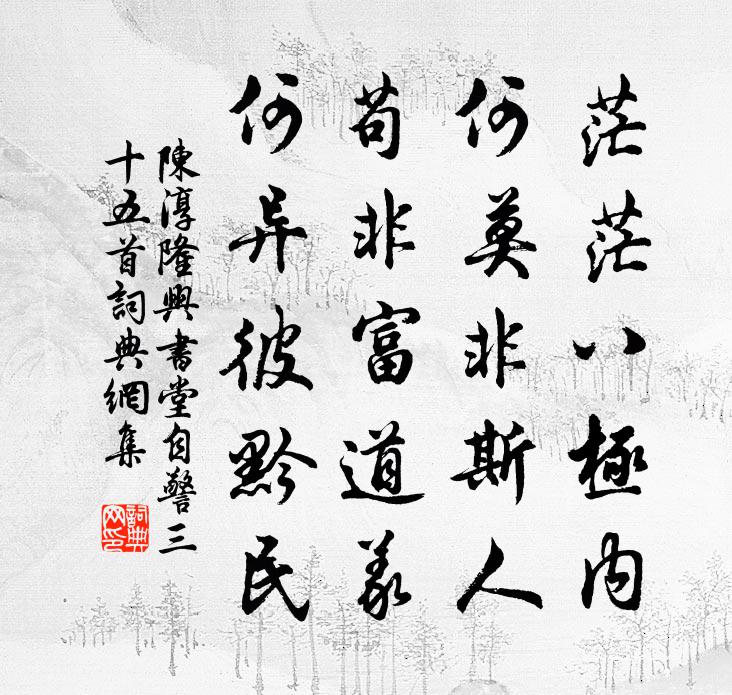 茫茫八極内
何莫非斯人
苟非富道義
何异彼黔民
陳淳隆興書堂自警三
十五首詞典網集
詞典
网印